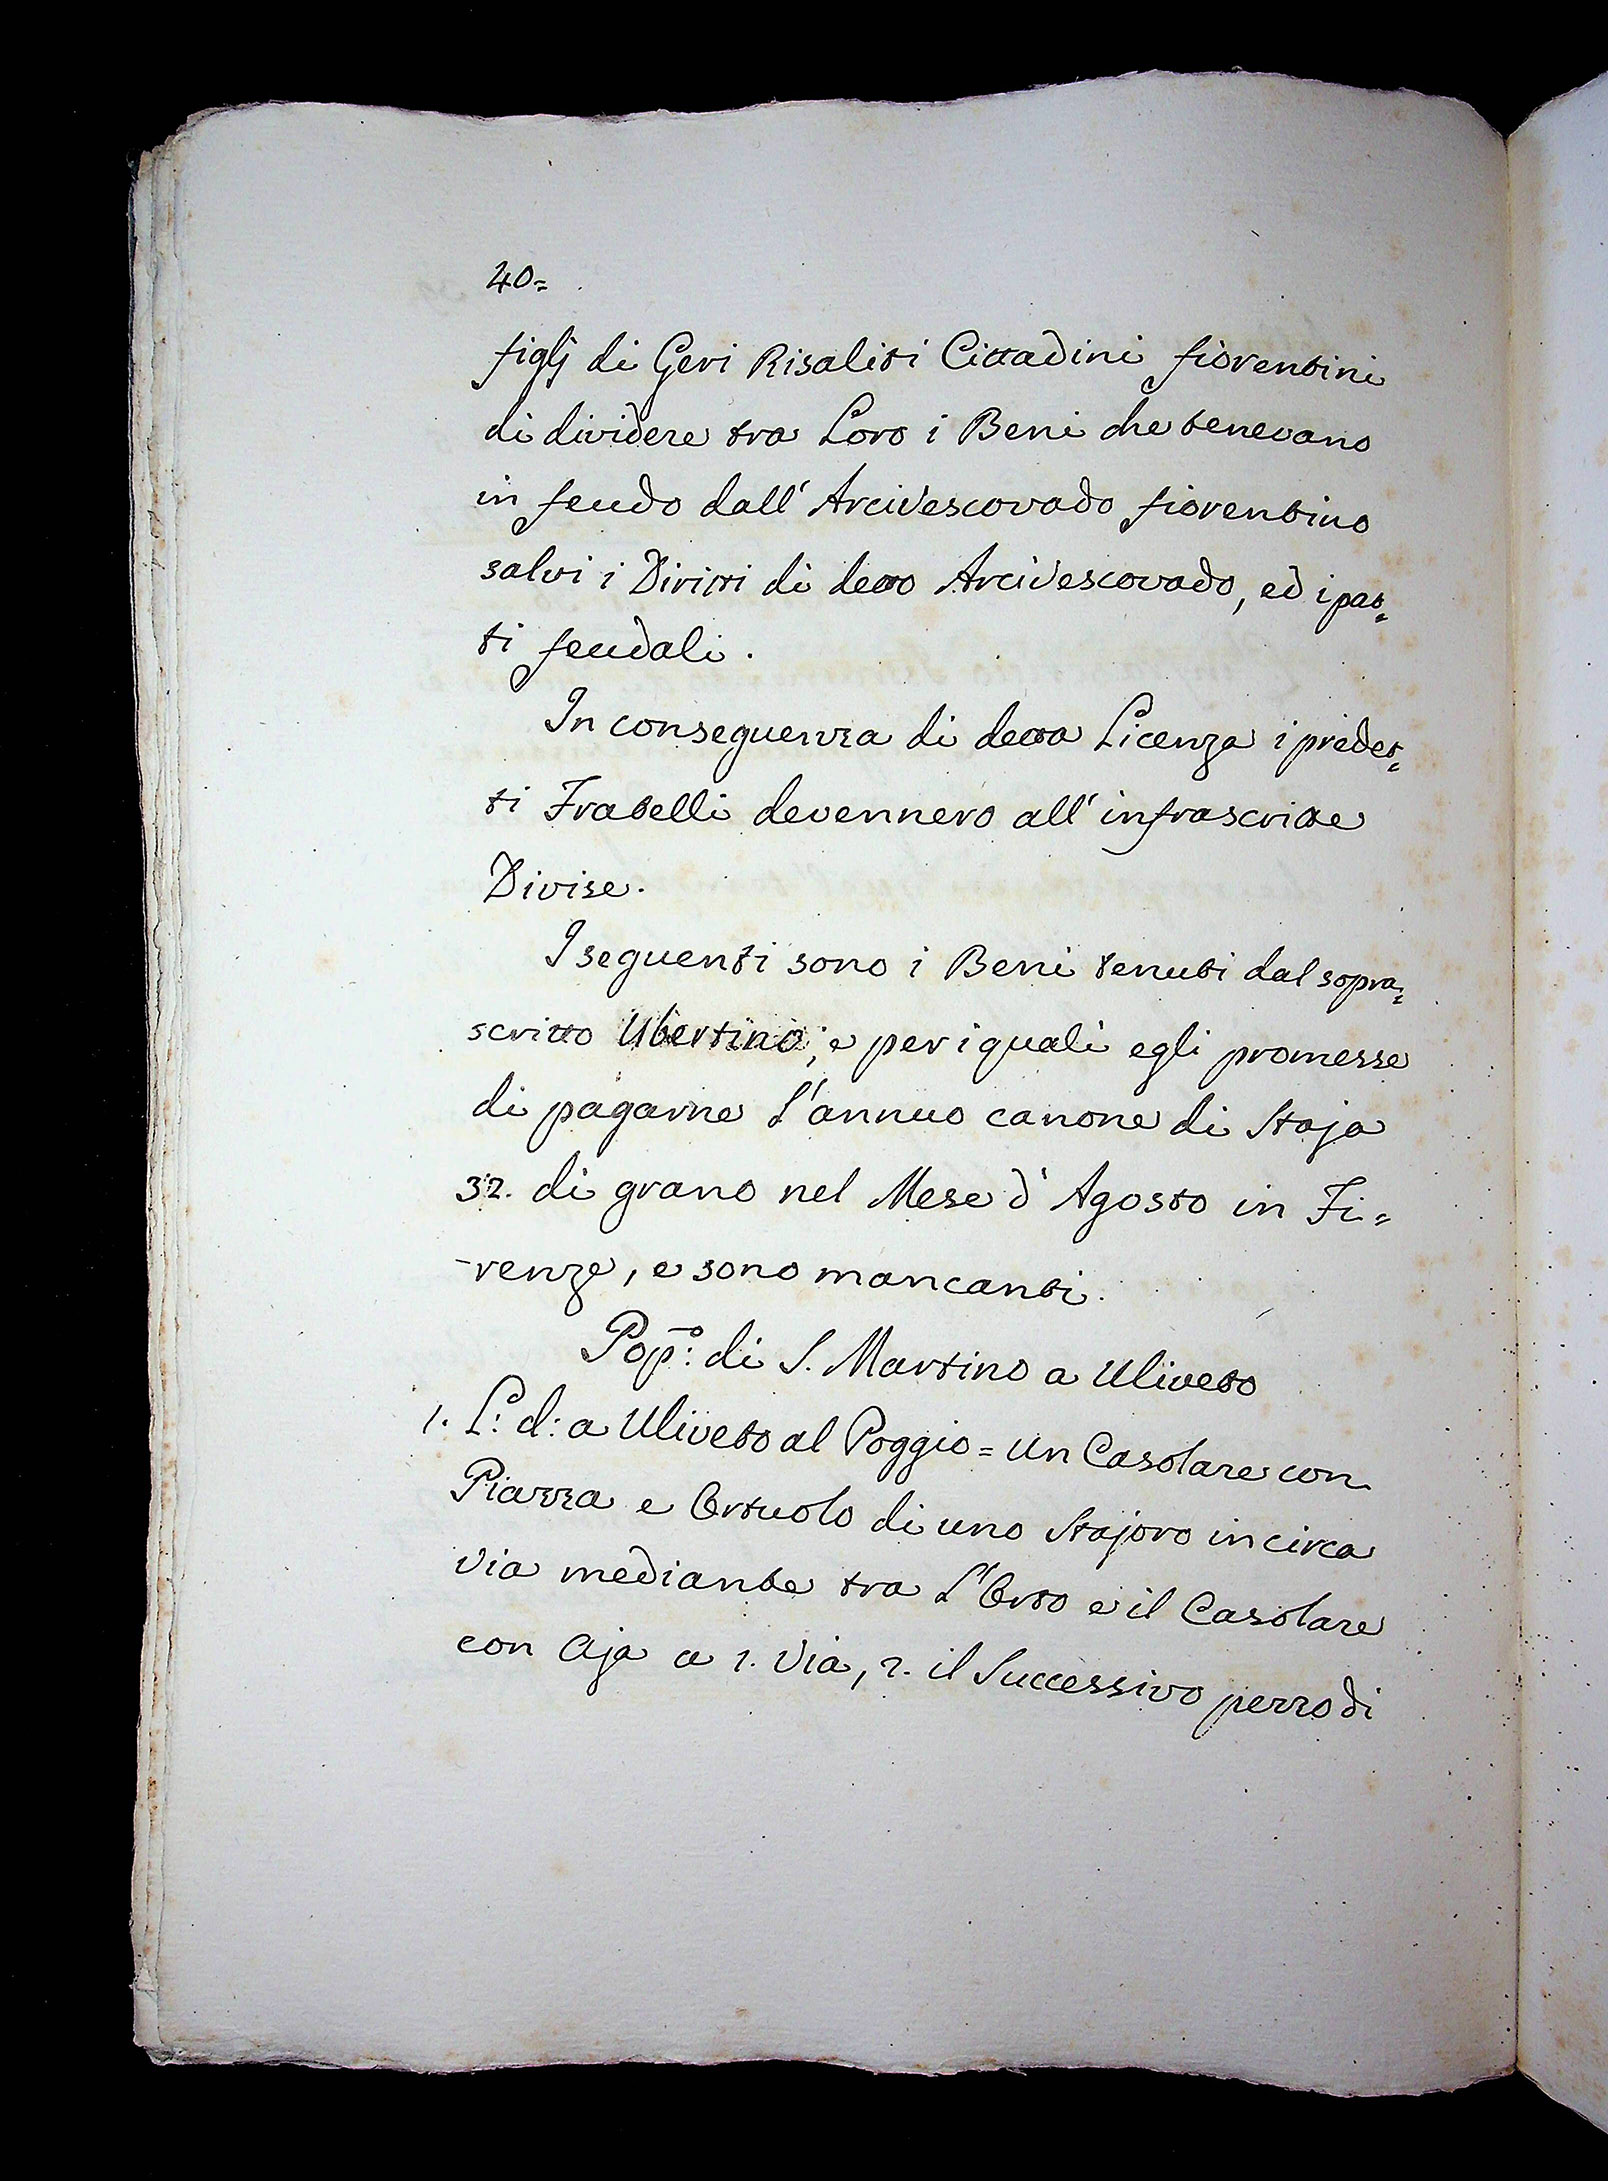 40=
figlj di Geri Risaliti Cittadini fiorentini
di dividere tra Loro i Beni che tenevano
in feudo dall' Arcivescovado fiorentino
salvi i Diritti di detto Arcivescovado, ed i pat=
ti feudali.
In conseguenza di detta Licenza i predet=
ti Fratelli devennero all' infrascritte
Divise.
I seguenti sono i Beni tenuti dal sopra=
scritto Ubertino; e per i quali egli promesse
di pagarne l'annuo canone di Staja
32. di grano nel Mese d'Agosto in Fi=
-renze, e sono mancanti.
Pop:º di S. Martino a Uliveto
1. L: d: a Uliveto al Poggio = un Casolare con
Piazza e Ortuolo di uno Stajoro in circa
via mediante tra l'Orto e il Casolare
con Aja a 1. Via, 2. il Successivo pezzo di